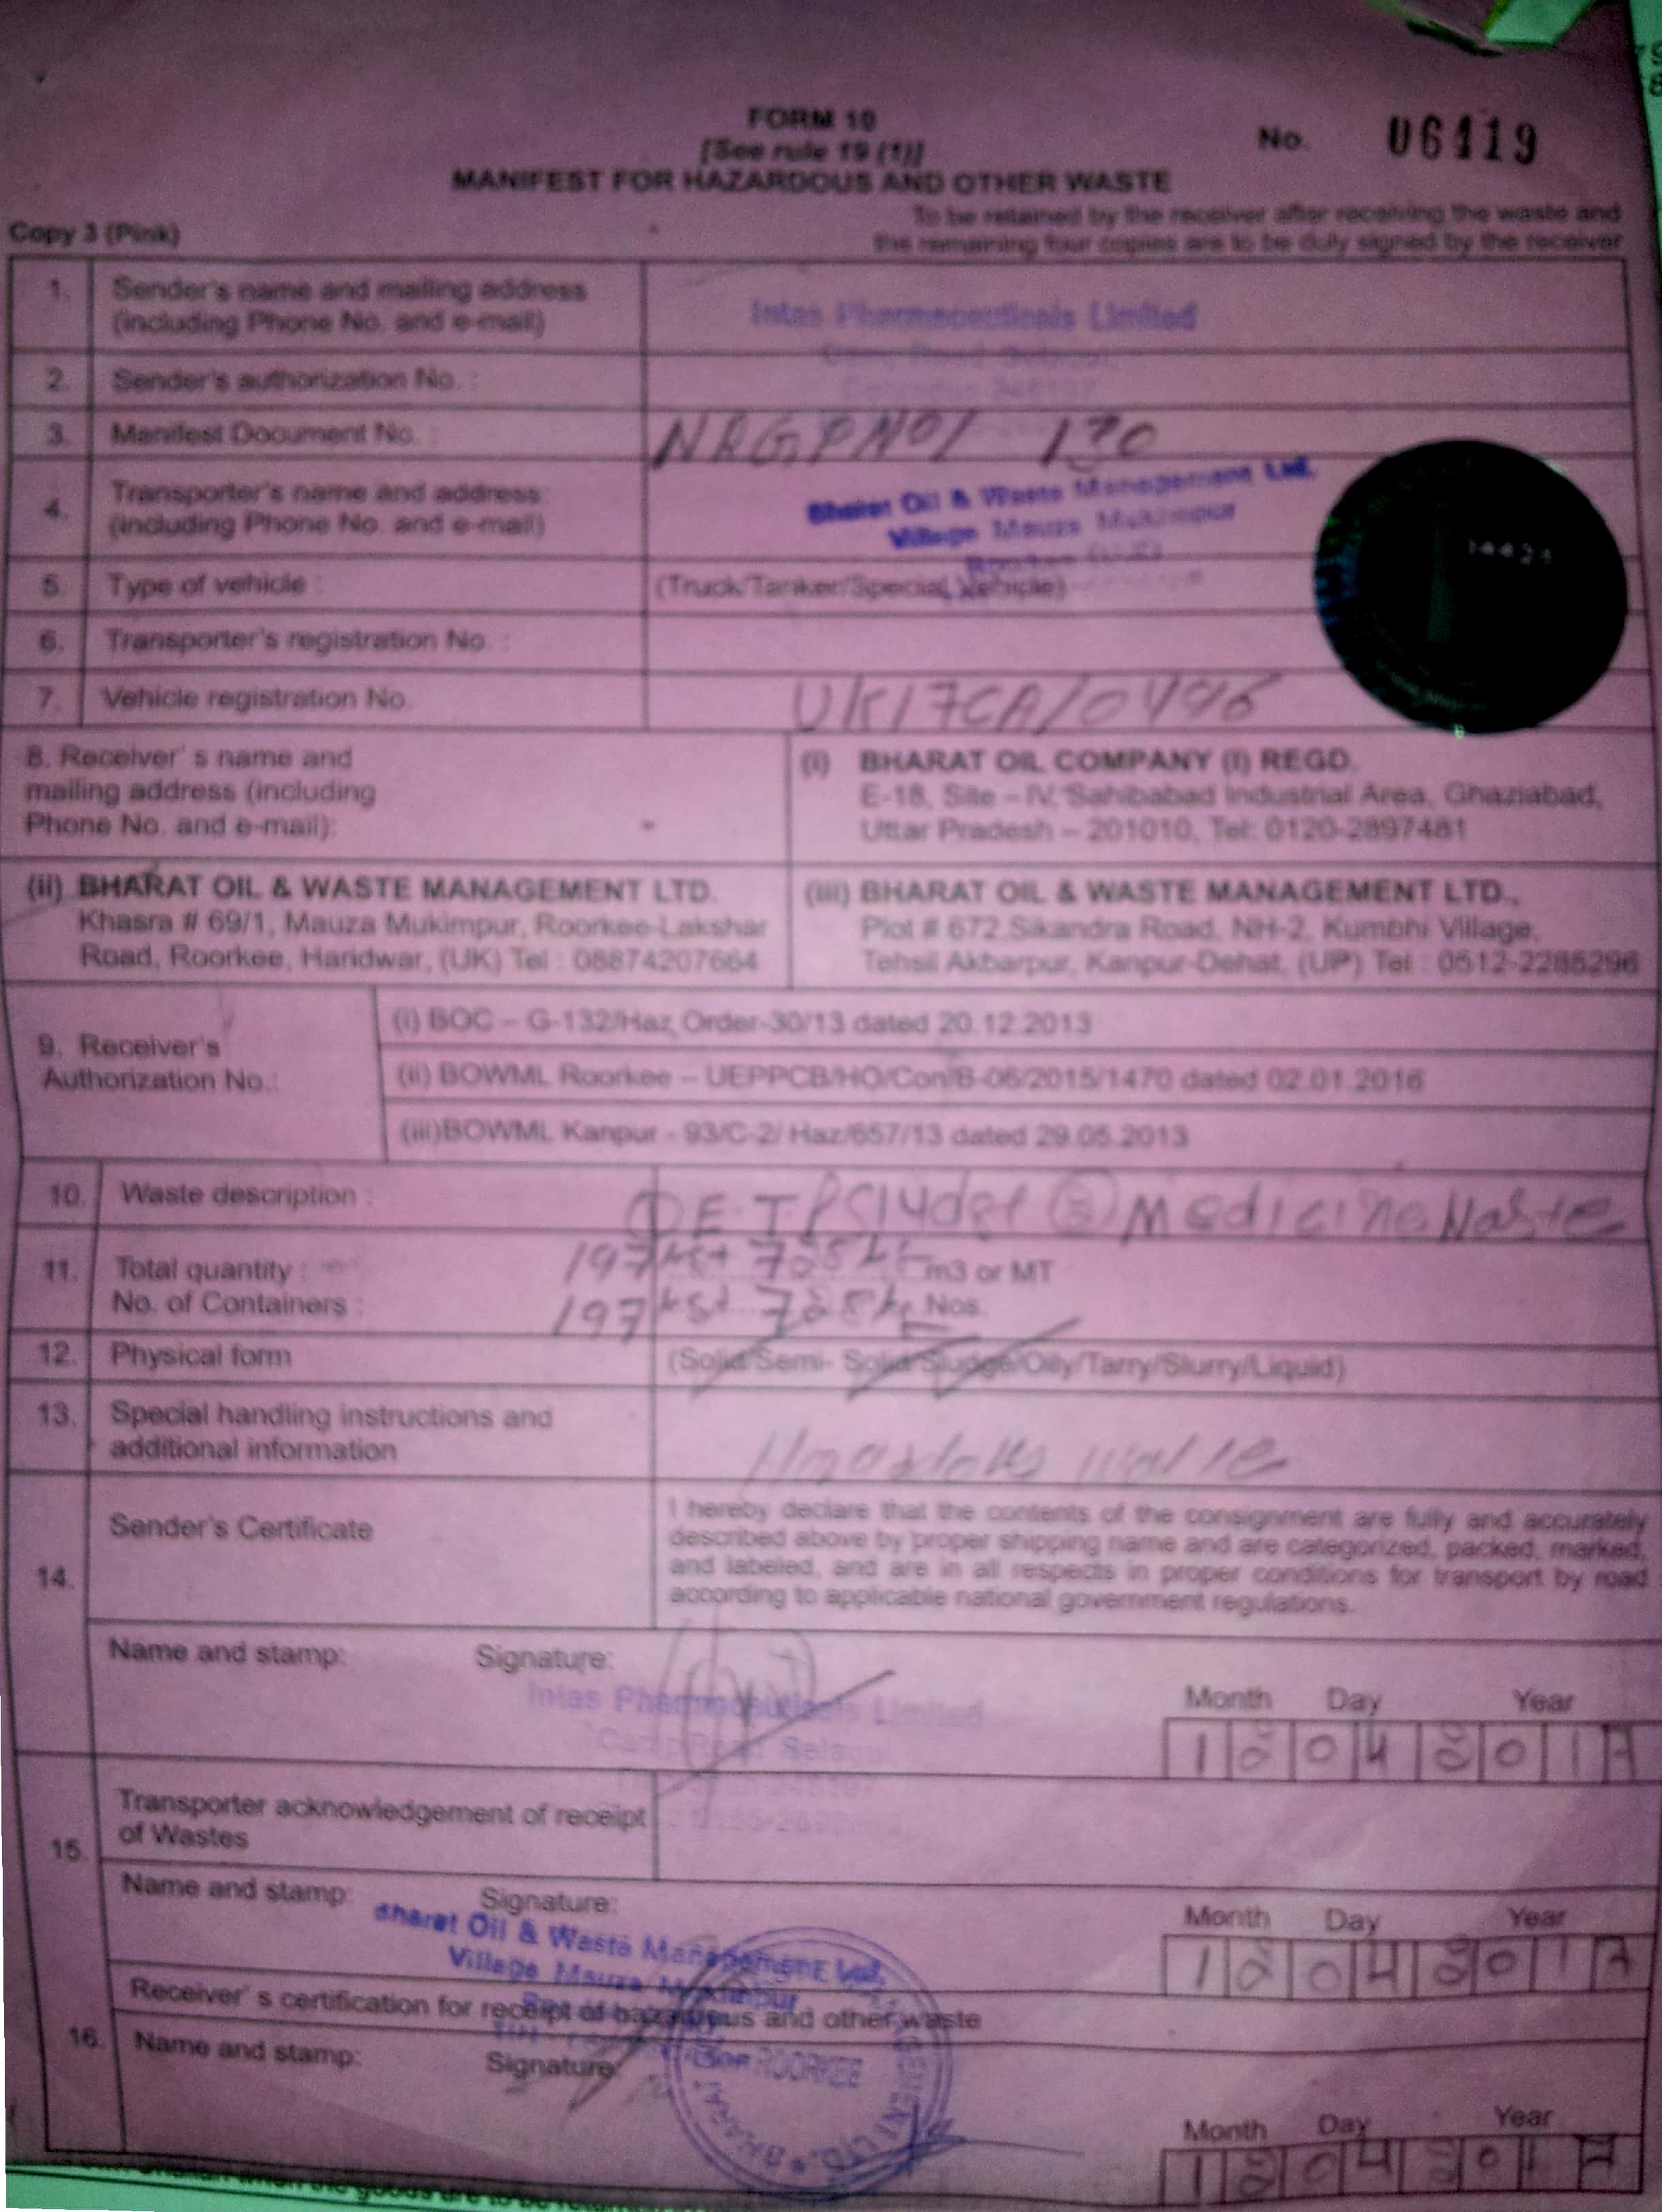 FORM 10
[See rule 19 (1)]
No. 06419
MANIFEST FOR HAZARDOUS AND OTHER WASTE
Copy 3 (Pink)
To be retained by the receiver after receiving the waste and
the remaining four copies are to be duly signed by the receiver
1. Sender's name and mailing address
(including Phone No. and e-mail)
Intas Pharmaceuticals Limited
2. Sender's authorization No. :
3. Manifest Document No. :
4. Transporter's name and address:
(including Phone No. and e-mail)
Bharat Oil & Waste Management Ltd.
Village Mauza Mukimpur
5. Type of vehicle : (Truck/Tanker/Special Vehicle)
6. Transporter's registration No. :
7. Vehicle registration No. UK17CA/0496
8. Receiver' s name and
mailing address (including
Phone No. and e-mail):
(i) BHARAT OIL COMPANY (I) REGD.
E-18, Site – IV, Sahibabad Industrial Area, Ghaziabad,
Uttar Pradesh – 201010, Tel: 0120-2897481
(ii) BHARAT OIL & WASTE MANAGEMENT LTD.
Khasra # 69/1, Mauza Mukimpur, Roorkee-Lakshar
Road, Roorkee, Haridwar, (UK) Tel : 08874207664
(iii) BHARAT OIL & WASTE MANAGEMENT LTD.,
Plot # 672 Sikandra Road, NH-2, Kumbhi Village,
Tehsil Akbarpur, Kanpur-Dehat, (UP) Tel : 0512-2285296
9. Receiver's
Authorization No.:
(i) BOC – G-132/Haz Order-30/13 dated 20.12.2013
(ii) BOWML Roorkee – UEPPCB/HO/Con/B-06/2015/1470 dated 02.01.2016
(iii)BOWML Kanpur - 93/C-2/ Haz/657/13 dated 29.05.2013
10. Waste description : ① E.T.P Sludge ② Medicine Waste
11. Total quantity : 197 m3 or MT
No. of Containers : 197 Nos.
12. Physical form (Solid/Semi- Solid/Sludge/Oily/Tarry/Slurry/Liquid)
13. Special handling instructions and
additional information
14. Sender's Certificate
I hereby declare that the contents of the consignment are fully and accurately
described above by proper shipping name and are categorized, packed, marked,
and labeled, and are in all respects in proper conditions for transport by road
according to applicable national government regulations.
Name and stamp: Signature:
Intas Pharmaceuticals Limited
Month Day Year
1 2 0 4 2 0 1 7
15. Transporter acknowledgement of receipt
of Wastes
Name and stamp: Signature:
Bharat Oil & Waste Management Ltd.
Village Mauza Mukimpur
Month Day Year
1 2 0 4 2 0 1 7
16. Receiver' s certification for receipt of hazardous and other waste
Name and stamp: Signature:
ROORKEE
Month Day Year
1 2 0 4 2 0 1 7